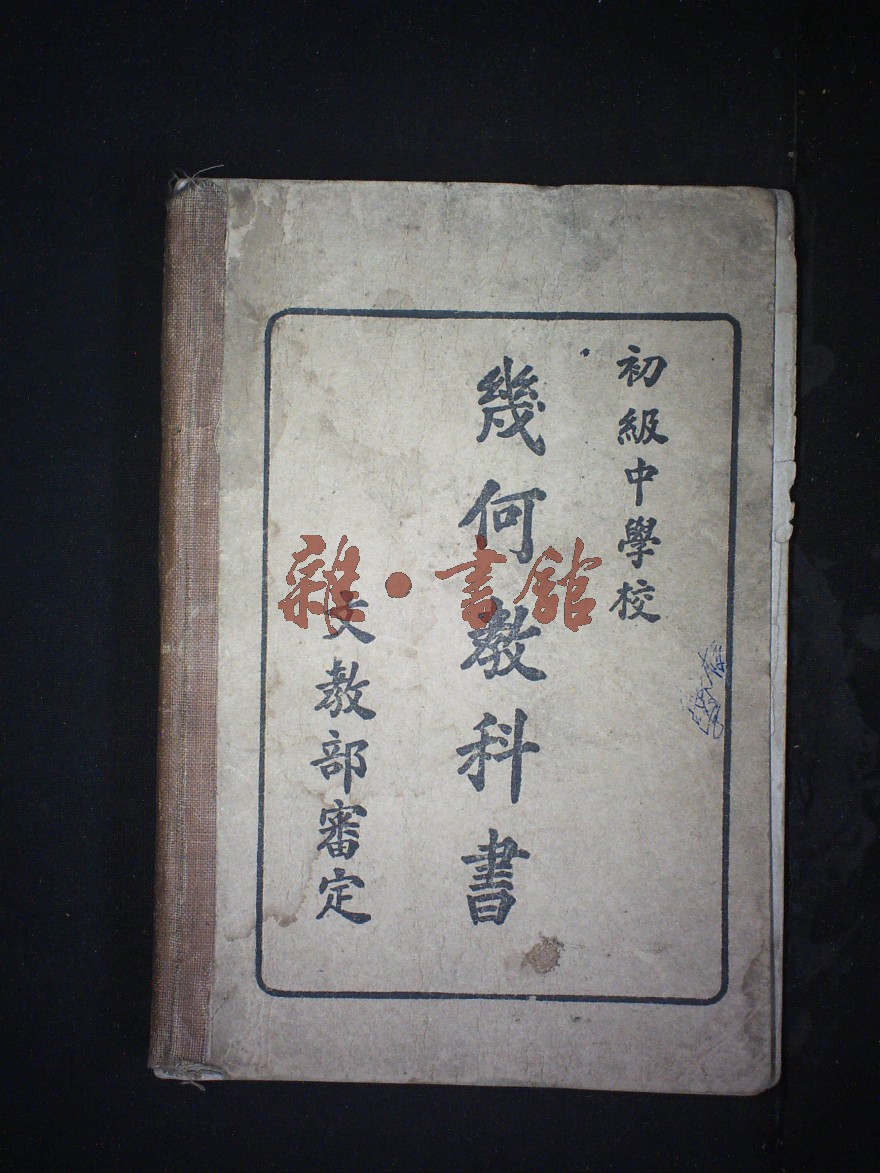 初級中學校
幾何教科書
文教部審定
雜·書館